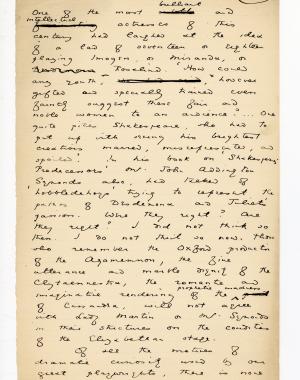 brilliant
One of the most and
intellectual
actresses of this
century had laughed at the idea
of a lad of seventeen or eighteen
playing Imogen, or Miranda, or
Rosalind. How could
any youth, however
gifted and specially trained even
faintly suggest these fair and
noble women to an audience ... One
quite pities Shakespeare, who had to
put up with seeing his brightest
creations marred, misrepresented, and
spoiled! In his book on Shakespere's
Predecessors Mr. John Addington
Symonds also had talked of
hobbledehoys trying to represent the
pathos of Desdemona and Juliet's
passion. Were they right? Are
they right? I did not think so
then. I do not think so now. Those
who remember the Oxford production
of the Agamemnon, the fine
utterance and marble dignity of the
Clytemnestra, the romantic and
imaginative rendering of the prophetic madness
of Cassandra, will not agree
with Lady Martin or Mr. Symonds
in their strictures on the condition
of the Elizabethan stage.
Of all the motives of
dramatic curiosity used by our
great playwrights, there is none